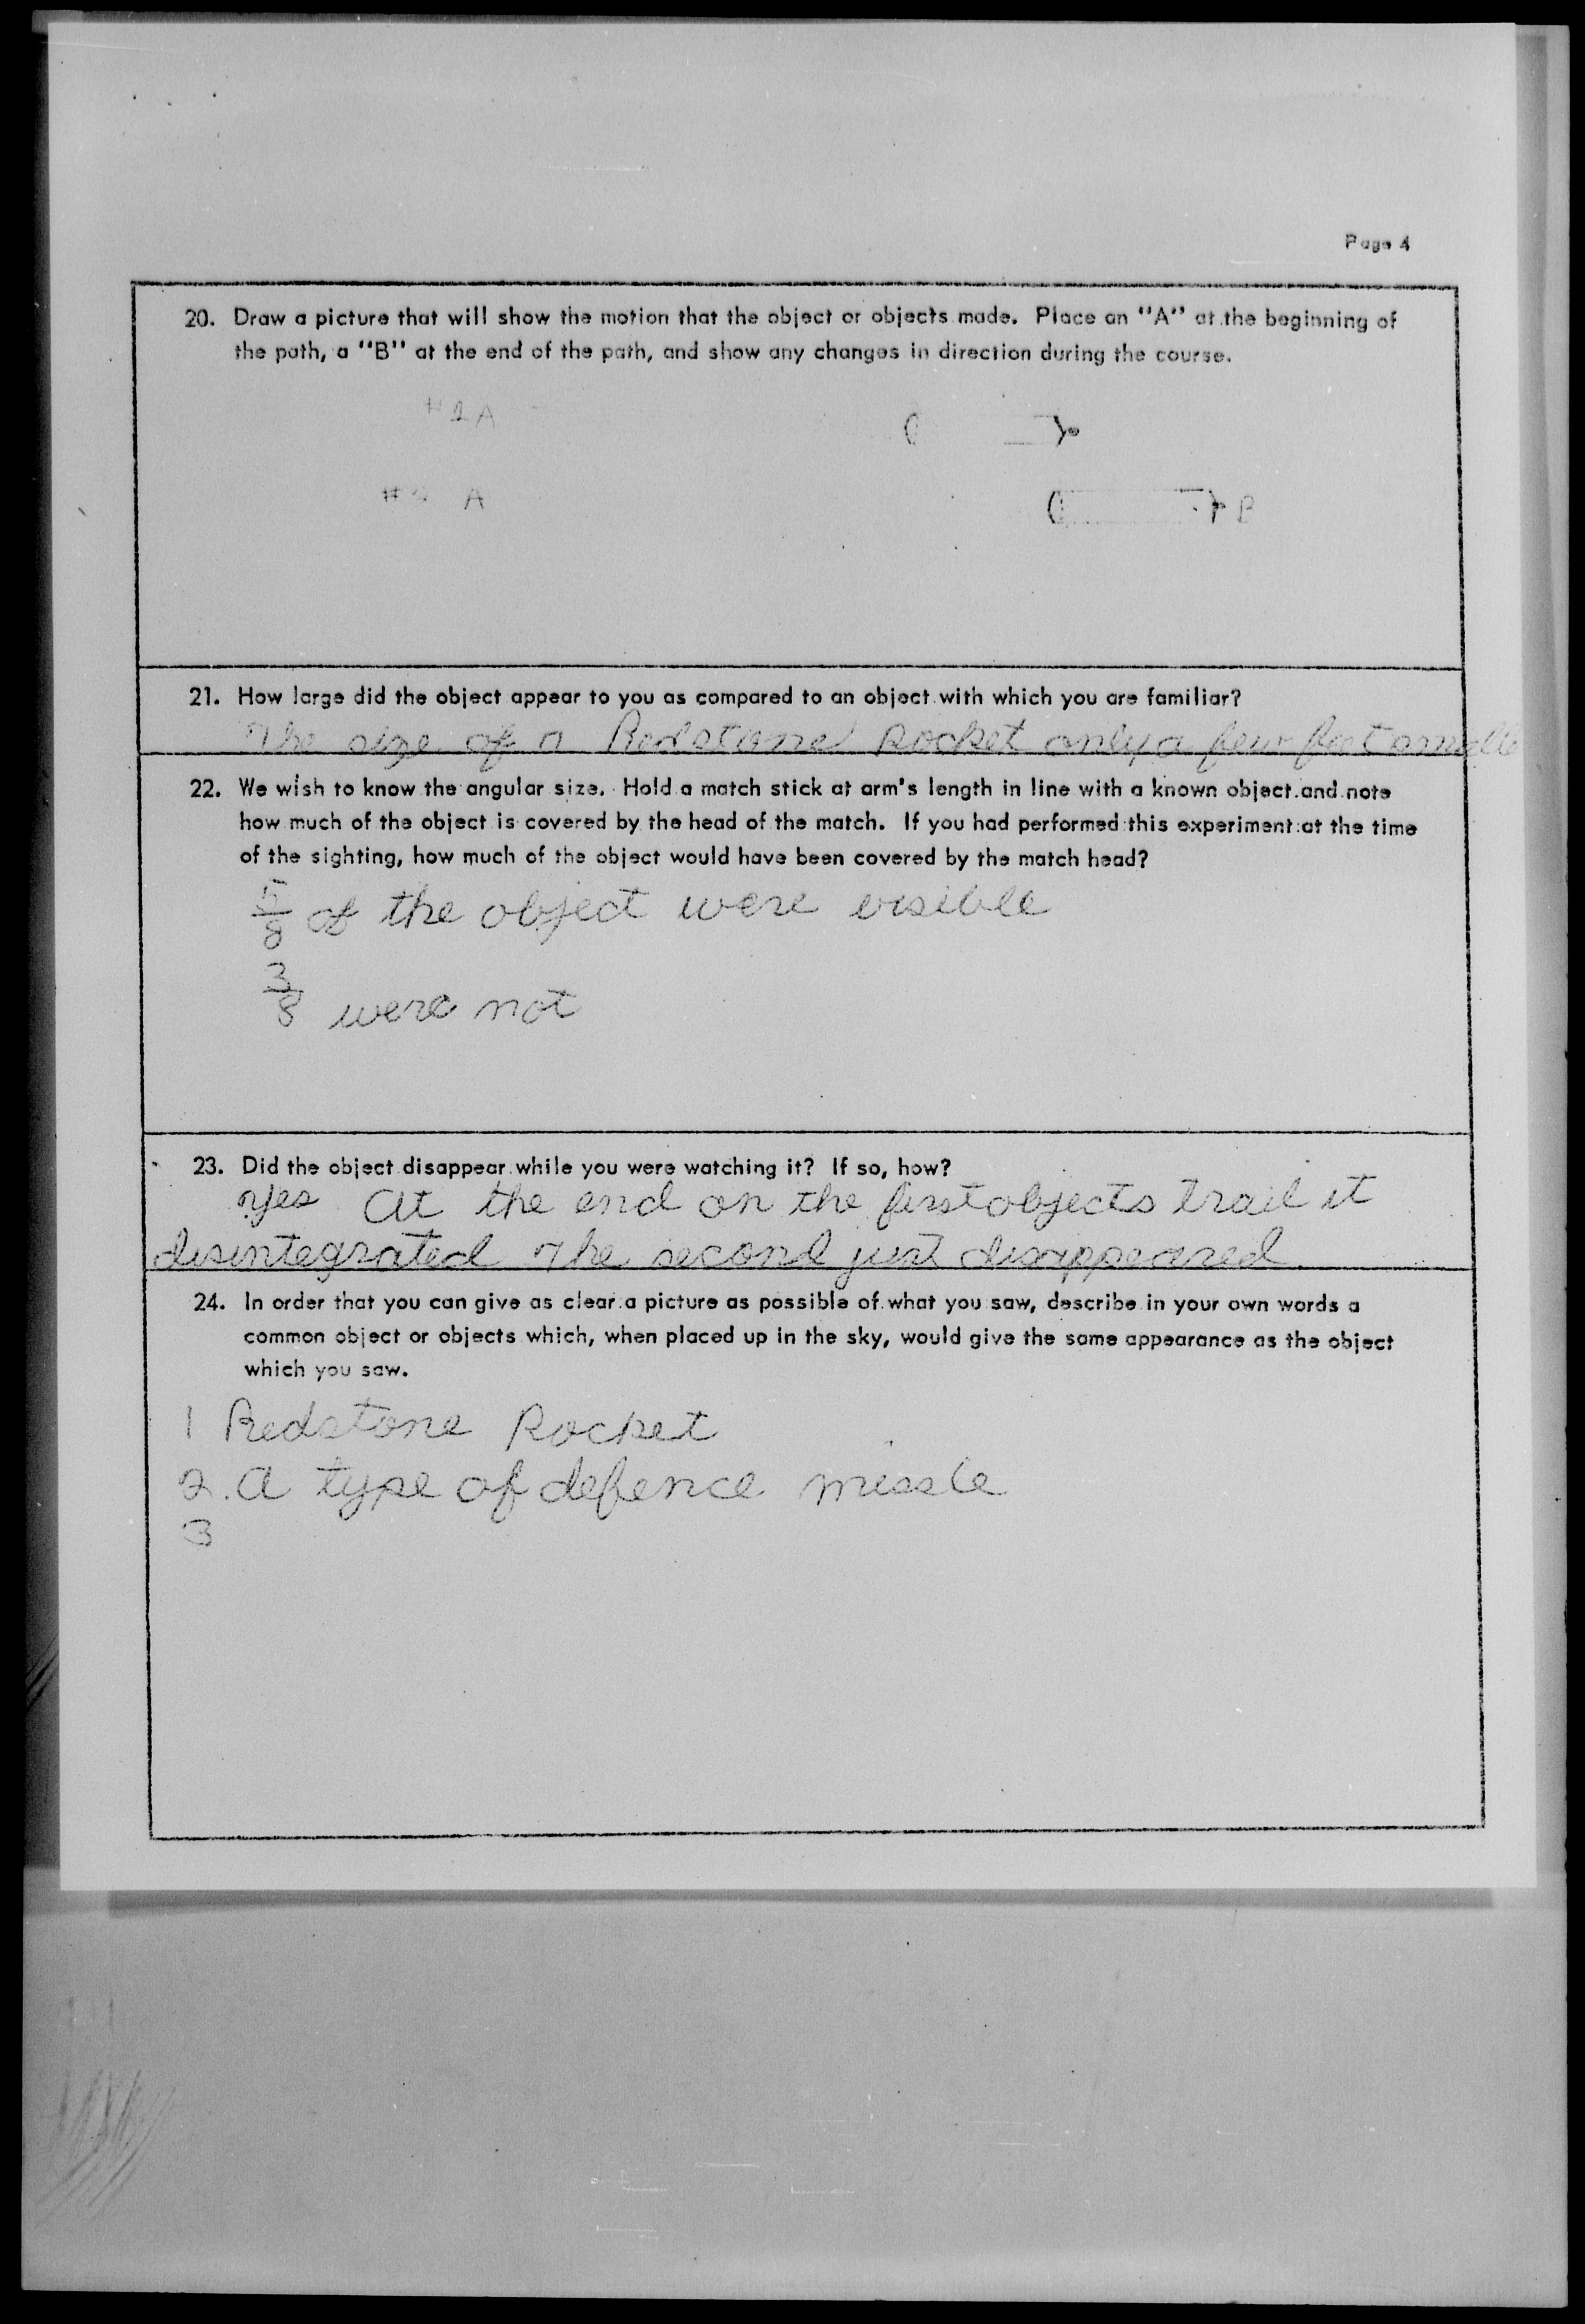 Page 4
20. Draw a picture that will show the motion that the object or objects made. Place an "A" at the beginning of
the path, a "B" at the end of the path, and show any changes in direction during the course.
#1 A
# A
B
21. How large did the object appear to you as compared to an object with which you are familiar?
The size of a Redstone Rocket only a few feet smaller
22. We wish to know the angular size. Hold a match stick at arm's length in line with a known object and note
how much of the object is covered by the head of the match. If you had performed this experiment at the time
of the sighting, how much of the object would have been covered by the match head?
5/8 of the object were visible
3/8 were not
23. Did the object disappear while you were watching it? If so, how?
Yes At the end on the first objects trail it
disintegrated The second just disappeared.
24. In order that you can give as clear a picture as possible of what you saw, describe in your own words a
common object or objects which, when placed up in the sky, would give the same appearance as the object
which you saw.
1 Redstone Rocket
2. A type of defence missle
3